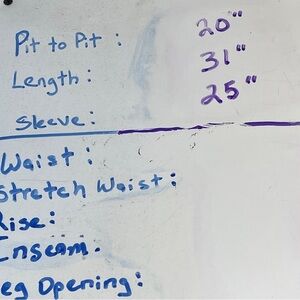 Pit to Pit : 20"
Length : 31"
Sleeve : 25"
Waist :
Stretch Waist :
Rise :
Inseam :
eg Opening :